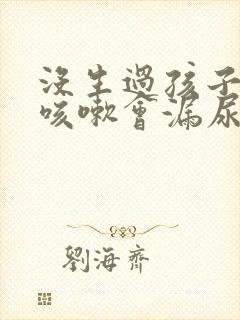 没生過孩子
咳嗽會漏尿
劉海齊